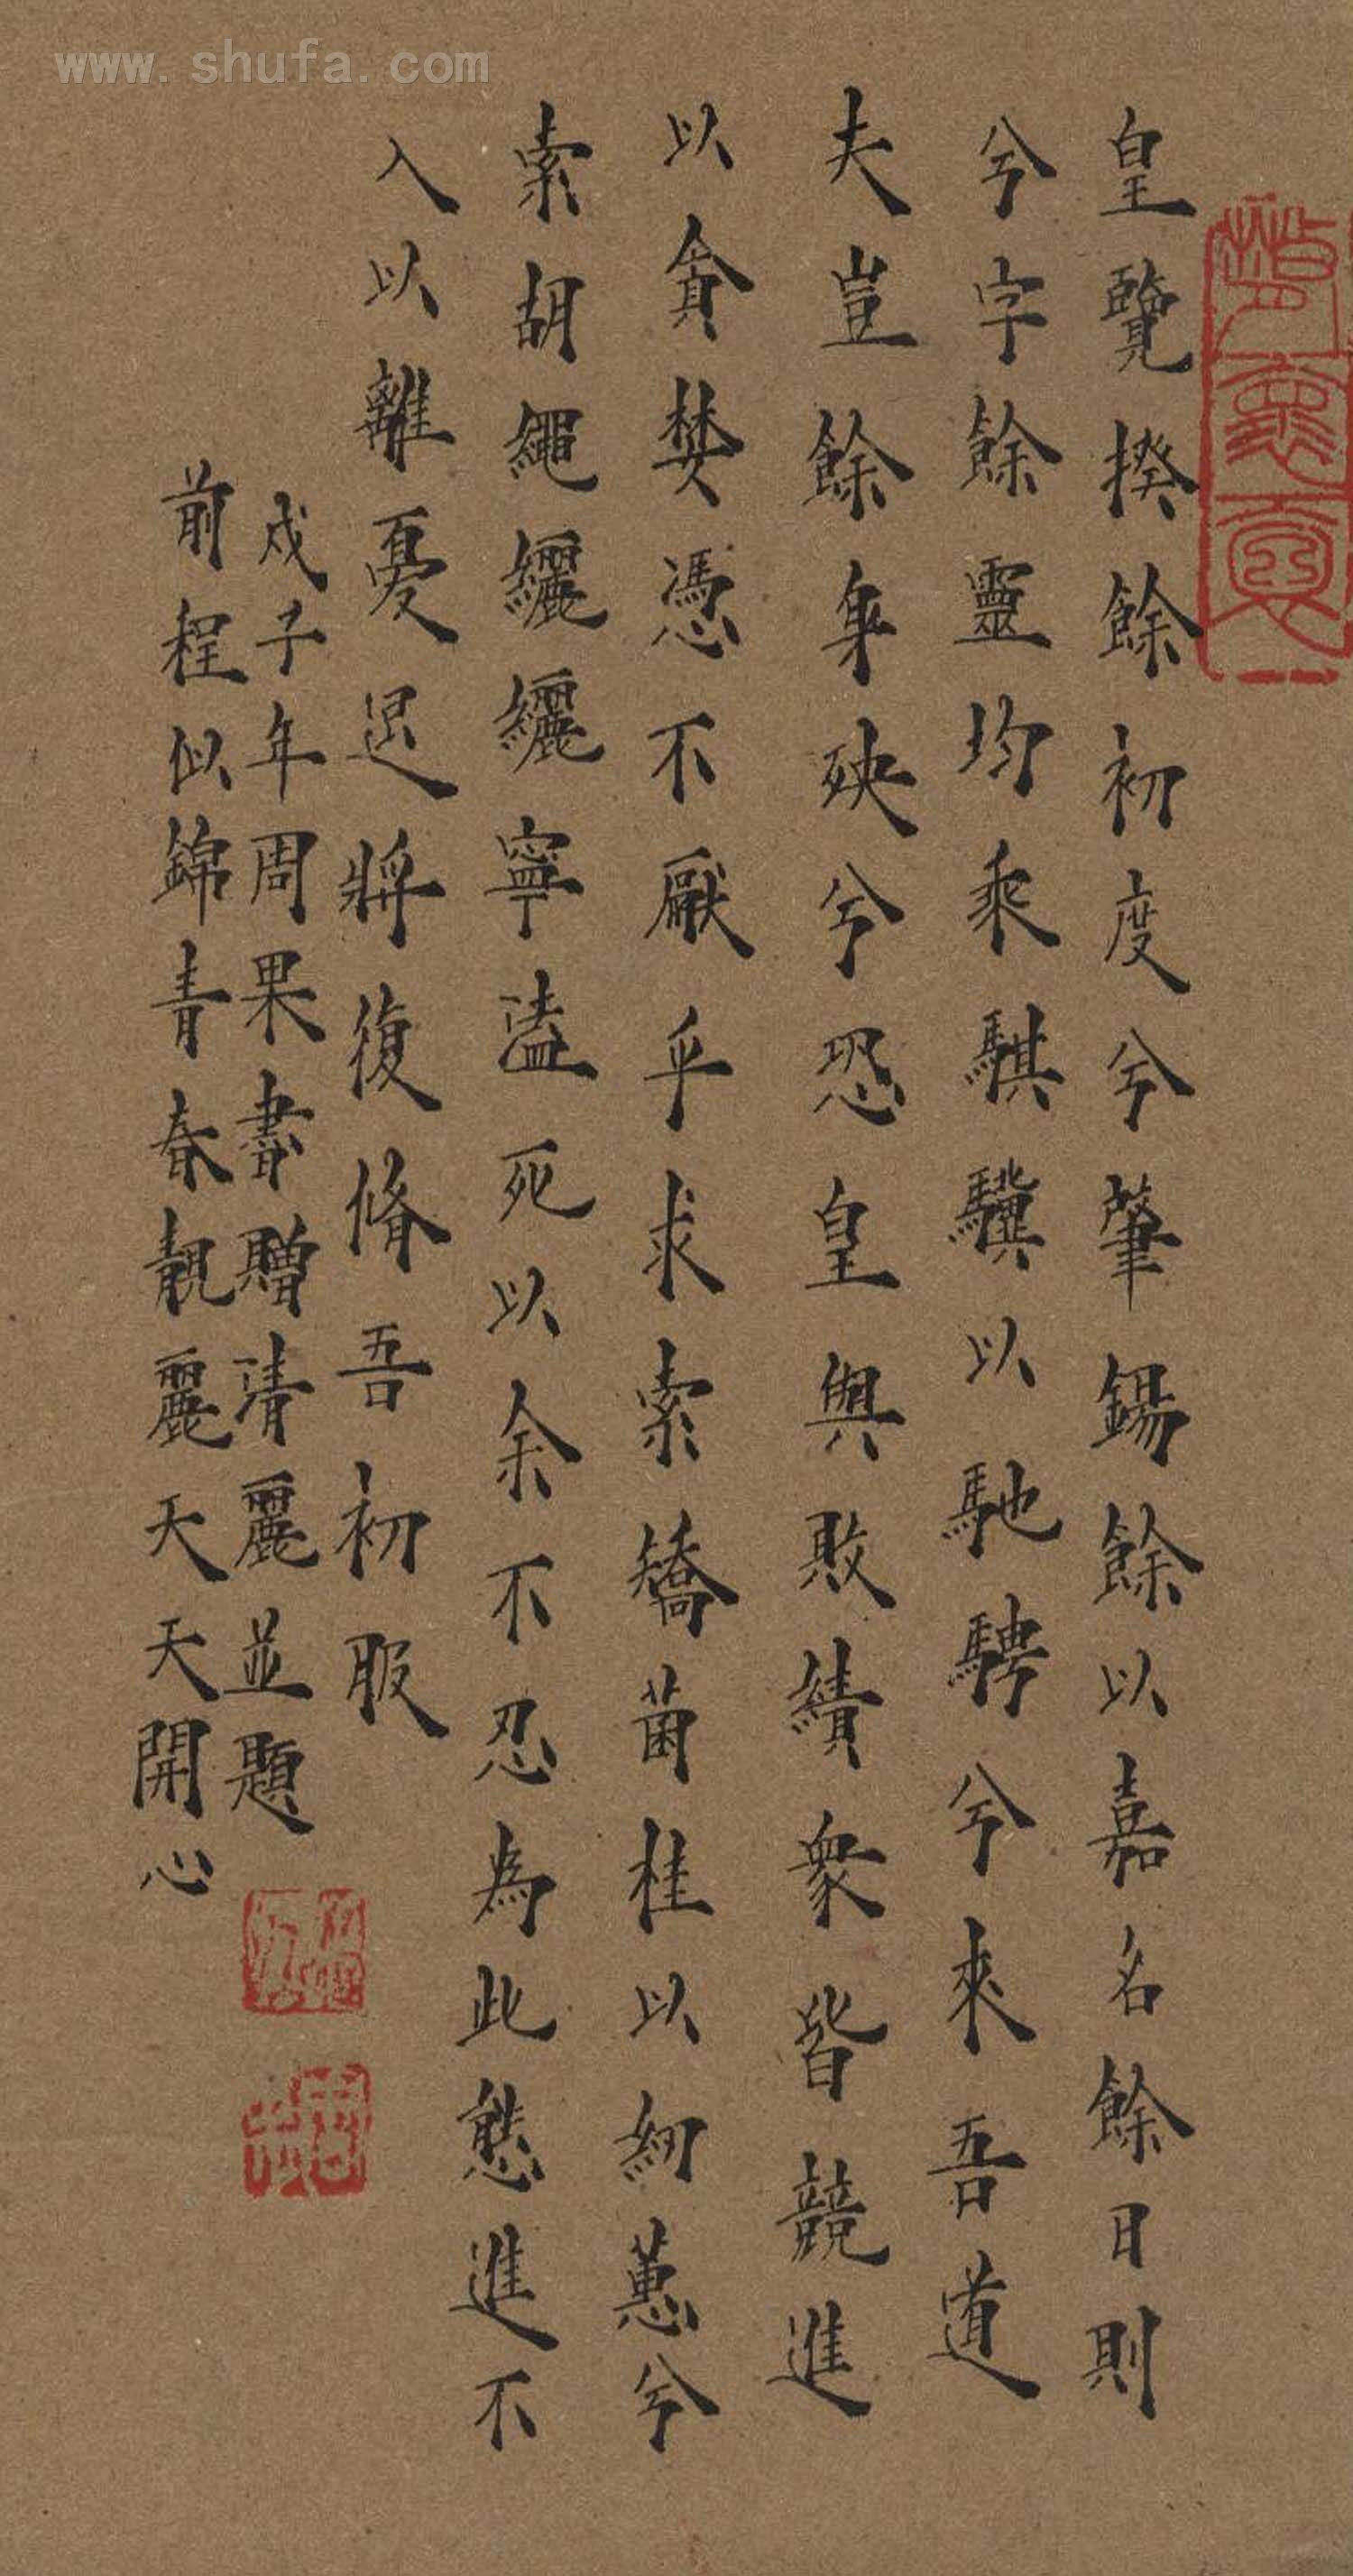 www.shufa.com
皇覽揆餘初度兮肇錫餘以嘉名餘日則
兮字餘靈均乘騏驥以馳騁兮來吾道
夫豈餘身殃兮恐皇輿敗績衆皆競進
以貪婪憑不厭乎求索矯菌桂以紉蕙兮
索胡繩纚纚寧溘死以余不忍為此態進不
入以離憂退將復脩吾初服
戊子年周果書贈清麗並題
前程似錦青春靚麗天天開心